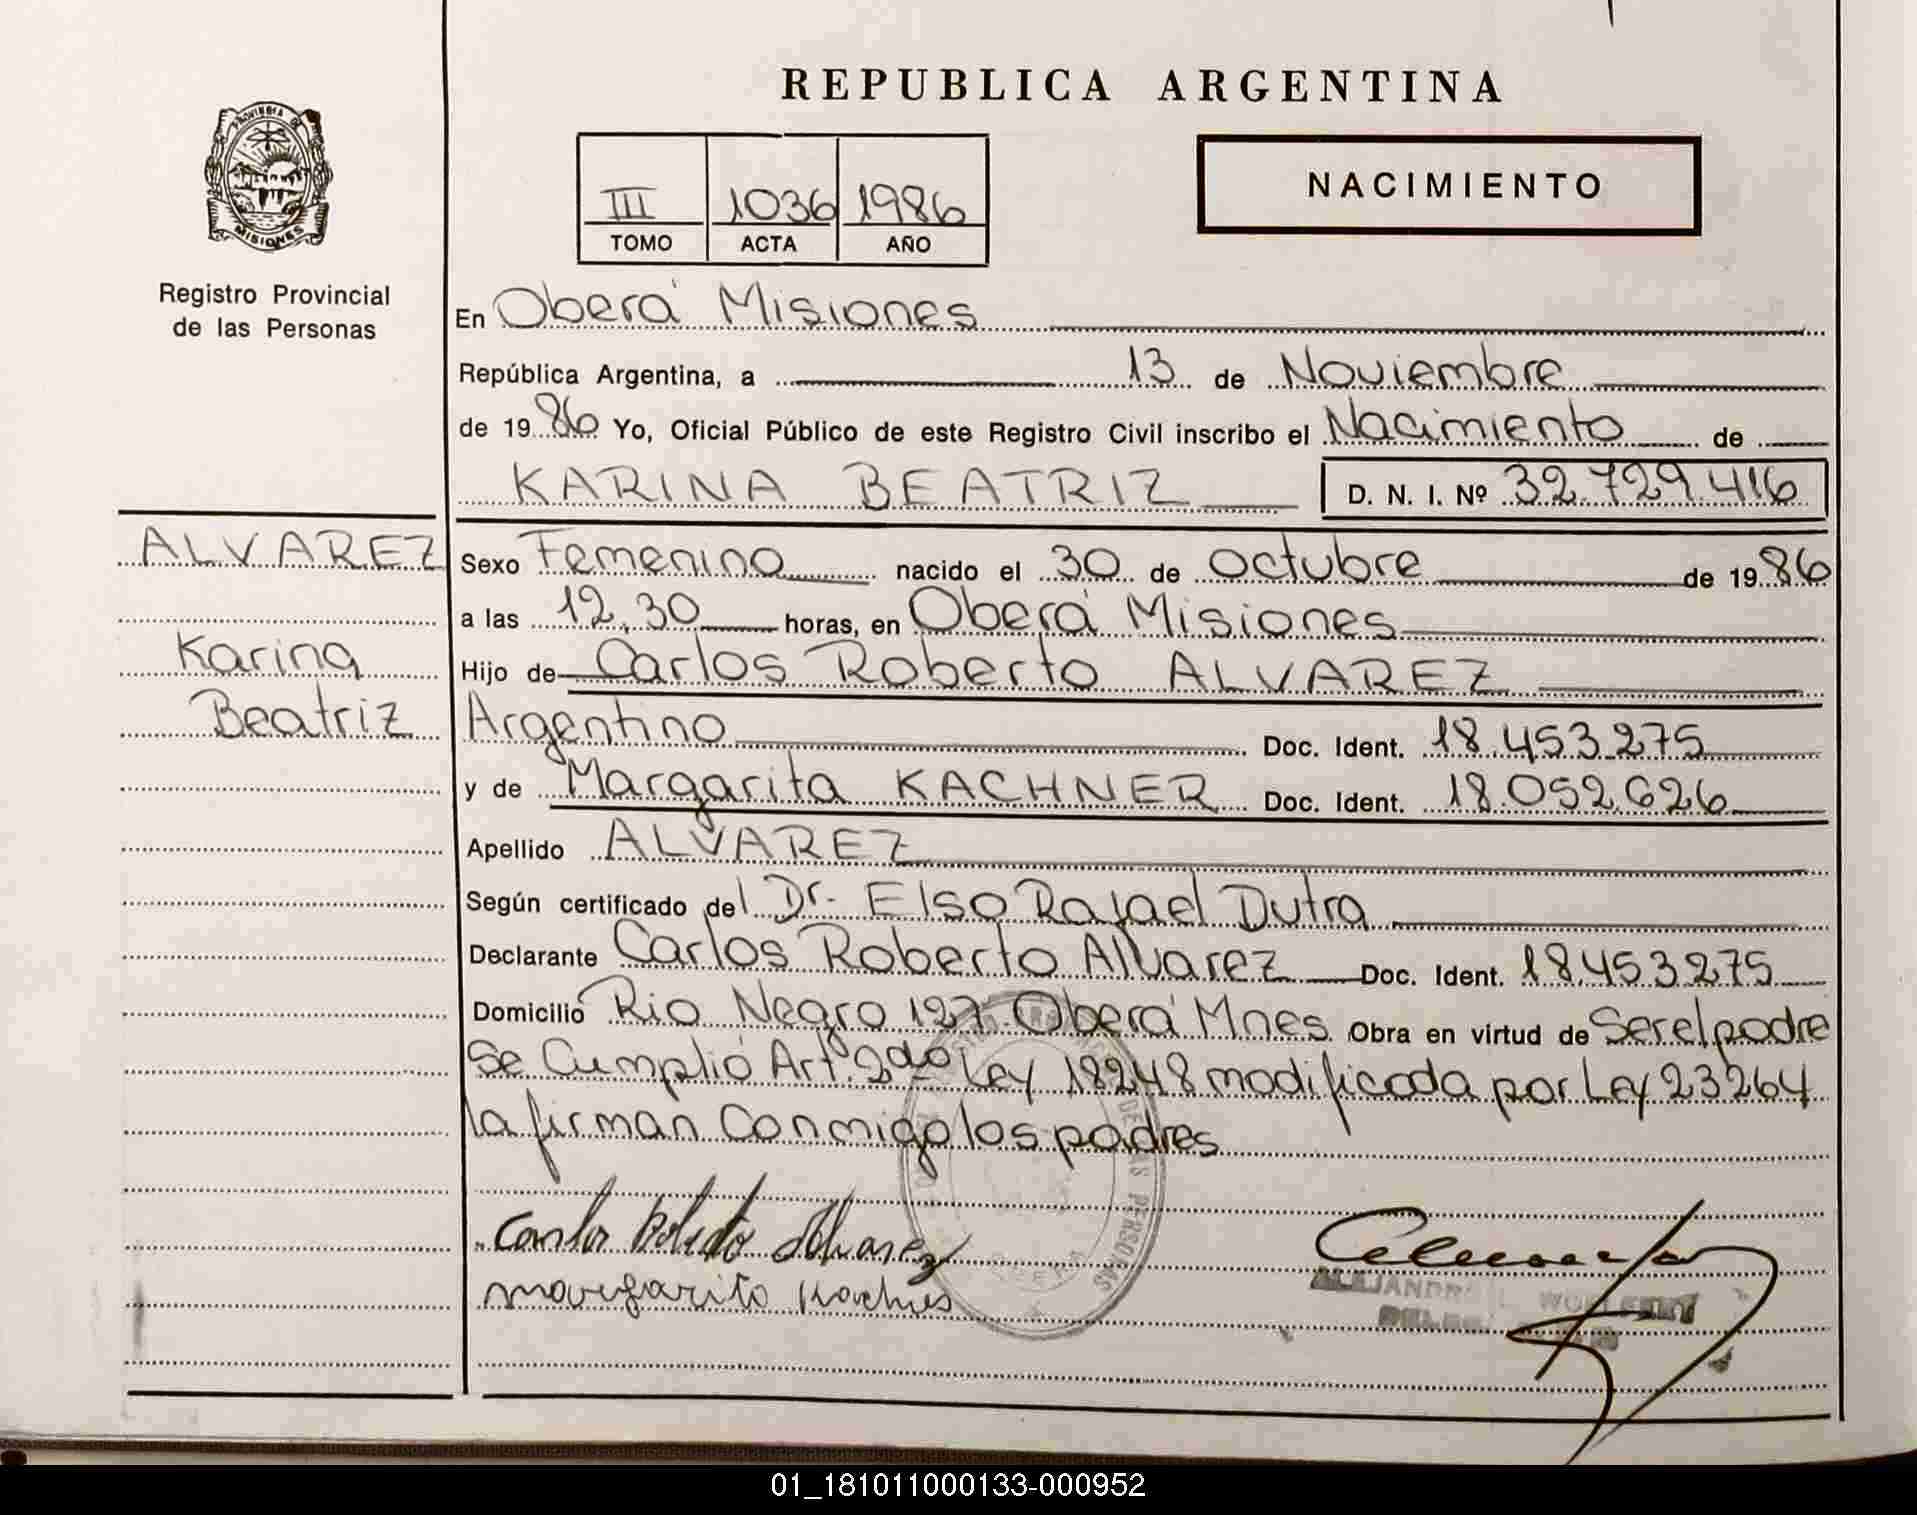 REPUBLICA ARGENTINA
PROVINCIA DE
MISIONES
Registro Provincial
de las Personas
III 1036 1986
TOMO ACTA AÑO
NACIMIENTO
En Oberá Misiones
República Argentina, a 13 de Noviembre
de 1986 Yo, Oficial Público de este Registro Civil inscribo el Nacimiento de
KARINA BEATRIZ D. N. I. Nº 32.729.416
ALVAREZ
Karina
Beatriz
Sexo Femenino nacido el 30 de Octubre de 1986
a las 12,30 horas, en Oberá Misiones
Hijo de Carlos Roberto ALVAREZ
Argentino Doc. Ident. 18.453.275
y de Margarita KACHNER Doc. Ident. 18.052.626
Apellido ALVAREZ
Según certificado del Dr. Elso Rafael Dutra
Declarante Carlos Roberto Alvarez Doc. Ident. 18.453.275
Domicilio Rio Negro 127 Oberá Mnes. Obra en virtud de Ser el padre
Se Cumplió Art. 2do Ley 18248 modificada por Ley 23264
la firman Conmigo los padres
DE LAS PERSONAS
Carlos Roberto Alvarez
margarita Kachner
01_181011000133-000952